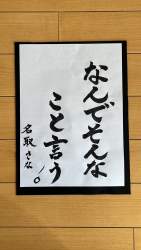 なんでそんな
こと言う!。
名取さな